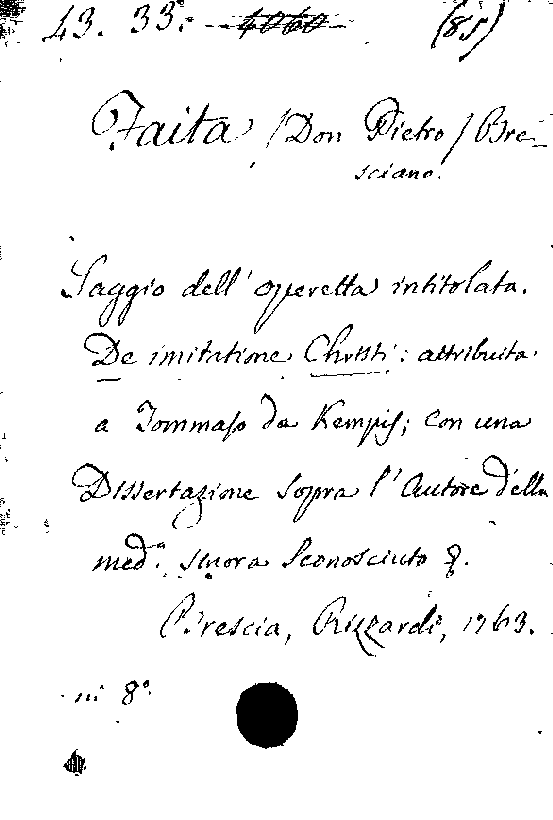 43. 33. 4060 (85)
Faita /Don Pietro/ Bre-
sciano.
Saggio dell' operetta intitolata.
De imitatione Christi: attribuita
a Tommaso da Kempis; con una
Dissertazione sopra l' Autore della
med.ª sinora sconosciuto &.
Brescia, Rizzardi, 1763.
in 8º.